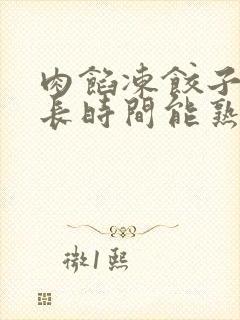 肉餡凍餃子
長時間能熟
徵1熙